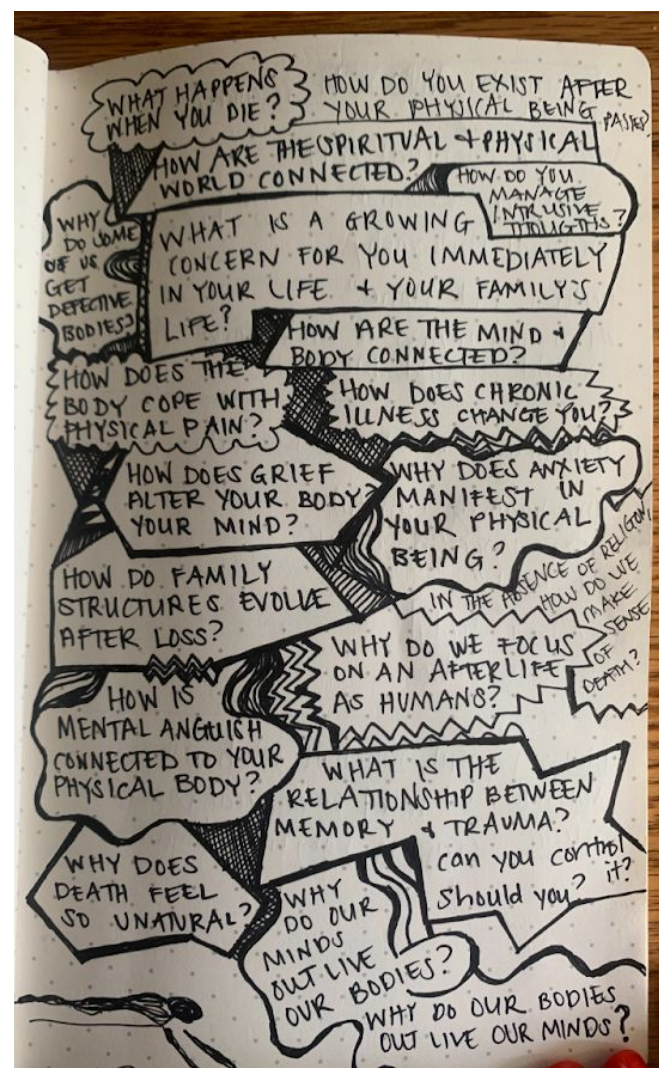 WHAT HAPPENS
WHEN YOU DIE?
HOW DO YOU EXIST AFTER
YOUR PHYSICAL BEING PASSES?
HOW ARE THE SPIRITUAL + PHYSICAL
WORLD CONNECTED?
HOW DO YOU
MANAGE
INTRUSIVE
THOUGHTS?
WHY
DO SOME
OF US
GET
DEFECTIVE
BODIES?
WHAT IS A GROWING
CONCERN FOR YOU IMMEDIATELY
IN YOUR LIFE + YOUR FAMILY'S
LIFE?
HOW ARE THE MIND +
BODY CONNECTED?
HOW DOES THE
BODY COPE WITH
PHYSICAL PAIN?
HOW DOES CHRONIC
ILLNESS CHANGE YOU?
HOW DOES GRIEF
ALTER YOUR BODY?
YOUR MIND?
WHY DOES ANXIETY
MANIFEST IN
YOUR PHYSICAL
BEING?
IN THE ABSENCE OF RELIGION,
HOW DO WE
MAKE
SENSE
OF
DEATH?
HOW DO FAMILY
STRUCTURES EVOLVE
AFTER LOSS?
WHY DO WE FOCUS
ON AN AFTERLIFE
AS HUMANS?
HOW IS
MENTAL ANGUISH
CONNECTED TO YOUR
PHYSICAL BODY?
WHAT IS THE
RELATIONSHIP BETWEEN
MEMORY + TRAUMA?
can you control
it?
Should you?
WHY DOES
DEATH FEEL
SO UNATURAL?
WHY
DO OUR
MINDS
OUT LIVE
OUR BODIES?
WHY DO OUR BODIES
OUT LIVE OUR MINDS?